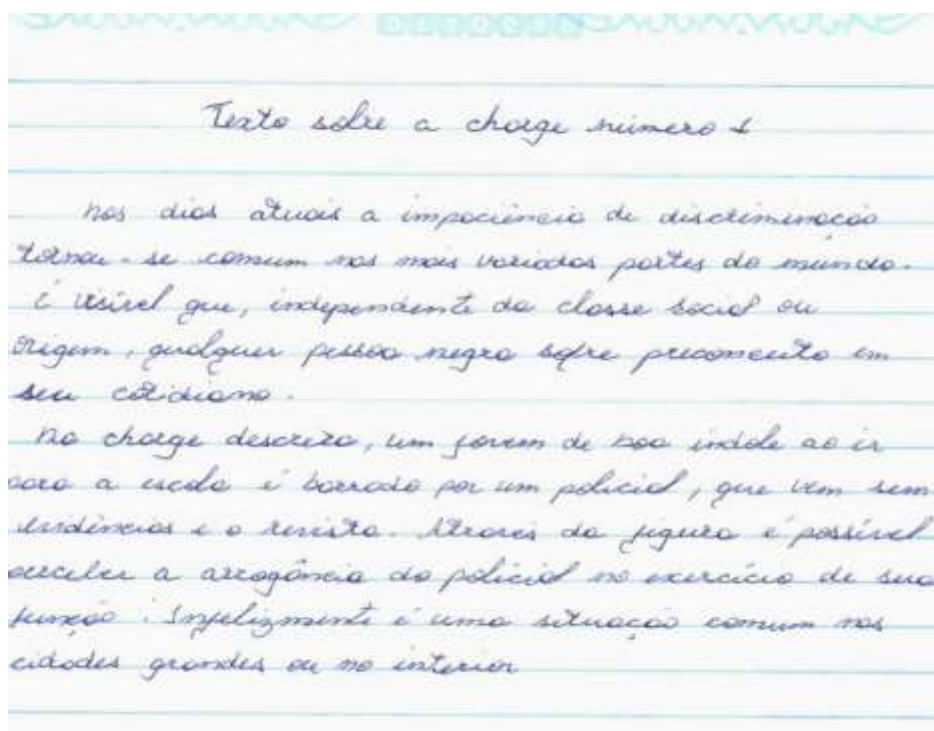 Texto sobre a charge número 1
Nos dias atuais a impaciência de discriminação
tornou-se comum nas mais variadas partes do mundo.
É visível que, independente da classe social ou
origem, qualquer pessoa negra sofre preconceito em
seu cotidiano.
Na charge descrita, um jovem de boa índole ao ir
para a escola é barrado por um policial, que vem sem
evidências e o revista. Através da figura é possível
perceber a arrogância do policial no exercício de sua
função. Infelizmente é uma situação comum nas
cidades grandes ou no interior